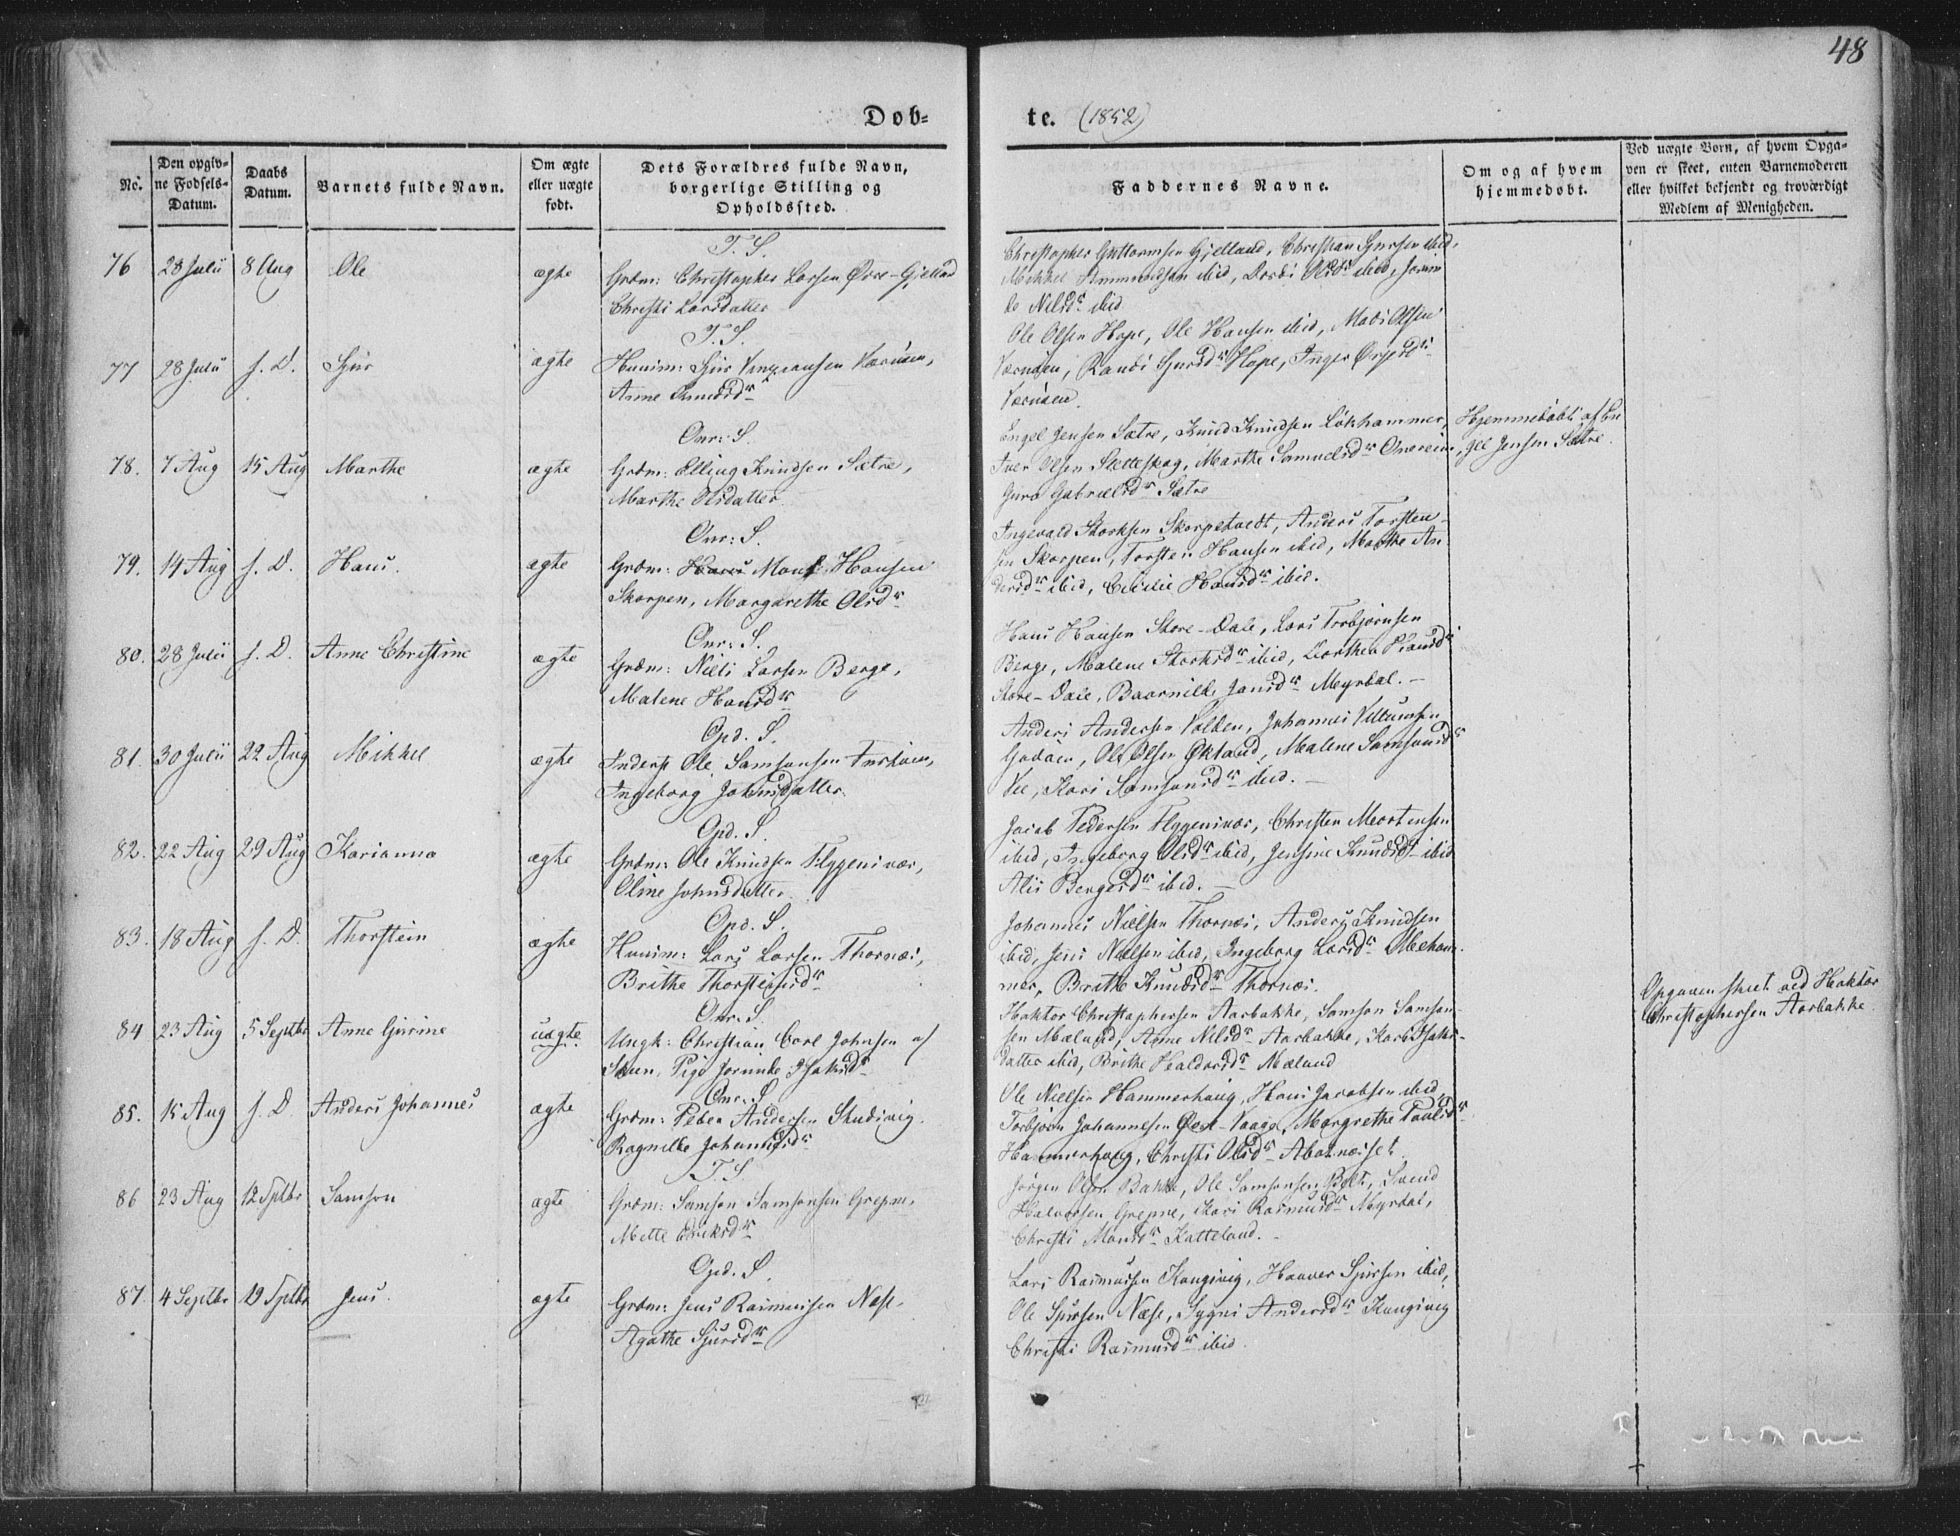 48
Døb-
te. (1852)
No.
Den opgiv-
ne Fødsels-
Datum.
Daabs
Datum.
Barnets fulde Navn.
Om ægte
eller uægte
født.
Dets Forældres fulde Navn,
borgerlige Stilling og
Opholdssted.
Faddernes Navne.
Om og af hvem
hjemmedøbt.
Ved uægte Børn, af hvem Opga-
ven er skeet, enten Barnemoderen
eller hvilket bekjendt og troværdigt
Medlem af Menigheden.
76 28 Julii 8 Aug Ole ægte
T. S.
Grdm: Christopher Larsen Øvre-Gjelland
Christi Larsdatter
Christopher Guttormsen Gjelland, Christian Sjursen ibid,
Mikkel Ammundsen ibid, Dordi Olsdr ibid, Jorun
da Nilsdr ibid
77 28 Julii s. D. Sjur ægte
T. S.
Huusm: Sjur Vinzentsen
Anne Knudsdr
Ole Olsen Hope, Ole Hansen ibid, Mads Olsen
Randi Sjursdr Hope, Inger
78. 7 Aug 15 Aug Marthe ægte
Onr: S.
Grdm: Elling Knudsen Sætre,
Marthe Olsdatter
Engel Jensen Sætre, Knud Knudsen Løkhammer,
Iver Olsen Sletteskog, Marthe Samuelsdr Onarein,
Guro Gabrielsdr Sætre
Hjemmedøbt af En
gel Jensen Sætre.
79. 14 Aug s. D. Hans. ægte
Onr: S.
Grdm: Hans Mons Hansen
Skorpen, Margarethe Olsdr
Ingevald Storksen Skorpetvedt, Anders Torsten-
sen Skorpen, Torsten Hansen ibid, Marthe An
dersdr ibid, Cicilie Hansdr ibid.
80. 28 Julii s. D. Anne Christine ægte
Onr: S.
Grdm: Niels Larsen Berge,
Malene Hansdr
Hans Hansen Store-Dale, Lars Torbjørnsen
Berge, Malene Storksdr ibid, Dorthea Hansdr
Store-Dale, Baarnille Jansdr Myrdal. —
81. 30 Julii 22 Aug Mikkel ægte
Opd. S.
Inderst Ole Samsonsen
Ingeborg Johnsdatter.
Anders Andersen Volden, Johannes Villumsen
Godøen, Ole Olsen Økland, Malene Samsonsdr
Vee, Kari Samsonsdr ibid. —
82. 22 Aug 29 Aug Karianna ægte
Opd. S.
Grdm: Ole Knudsen Flyggensvær,
Oline Johnsdatter
Jacob Pedersen Flyggensvær, Christen Mortensen
ibid, Ingeborg Olsdr ibid, Jensine Knudsdr ibid
Alis Bergesdr ibid. —
83. 18 Aug s. D. Thorstein ægte
Opd. S.
Huusm: Lars Larsen Thornæs,
Brithe Thorsteinsdr
Johannes Nielsen Thornæs, Anders Knudsen
ibid, Jens Nielsen ibid, Ingeborg Larsdr Ubeham
mer, Brithe Knudsdr Thornæs.
84 23 Aug 5 Septbr Anne Gurine uægte
Onr: S.
Ungk: Christian Carl Johnsen af
Skien, Pige Jorunde Isaksdr
Haktor Christophersen Aarbakke, Samson Samson-
sen Mæland, Anne Nilsdr Aarbakke, Kari Isaks-
datter ibid, Brithe Haldorsdr Mæland
Opgaven skeet ved Haktor
Christophersen Aarbakke.
85. 15 Aug s. D. Anders Johannes ægte
Onr: S
Grdm: Peder Andersen Skudivig.
Ragnilde Johannesdr
Ole Nielsen Hammerhaug, Hans Jacobsen ibid,
Torbjørn Johannesen Øest-Vaage, Margrethe Paulsdr
Hammerhaug, Christi Olsdr
86 23 Aug 12 Sptbr Samson ægte
T. S.
Grdm: Samson Samsonsen Grepne,
Mette Eriksdr
Jørgen Olsen Bakke, Ole Samsonsen Svend
Halvorsen Grepne, Kari Rasmusdr Myrdal,
Christi Monsdr Katteland. —
87. 4 Septbr 19 Sptbr Jens. ægte
Opd. S.
Grdm: Jens Rasmussen Næse,
Agathe Sjursdr
Lars Rasmussen Kongsvig, Haaver Sjursen ibid,
Ole Sjursen Næse, Sygni Andersdr Kongsvig
Christi Rasmusdr ibid.